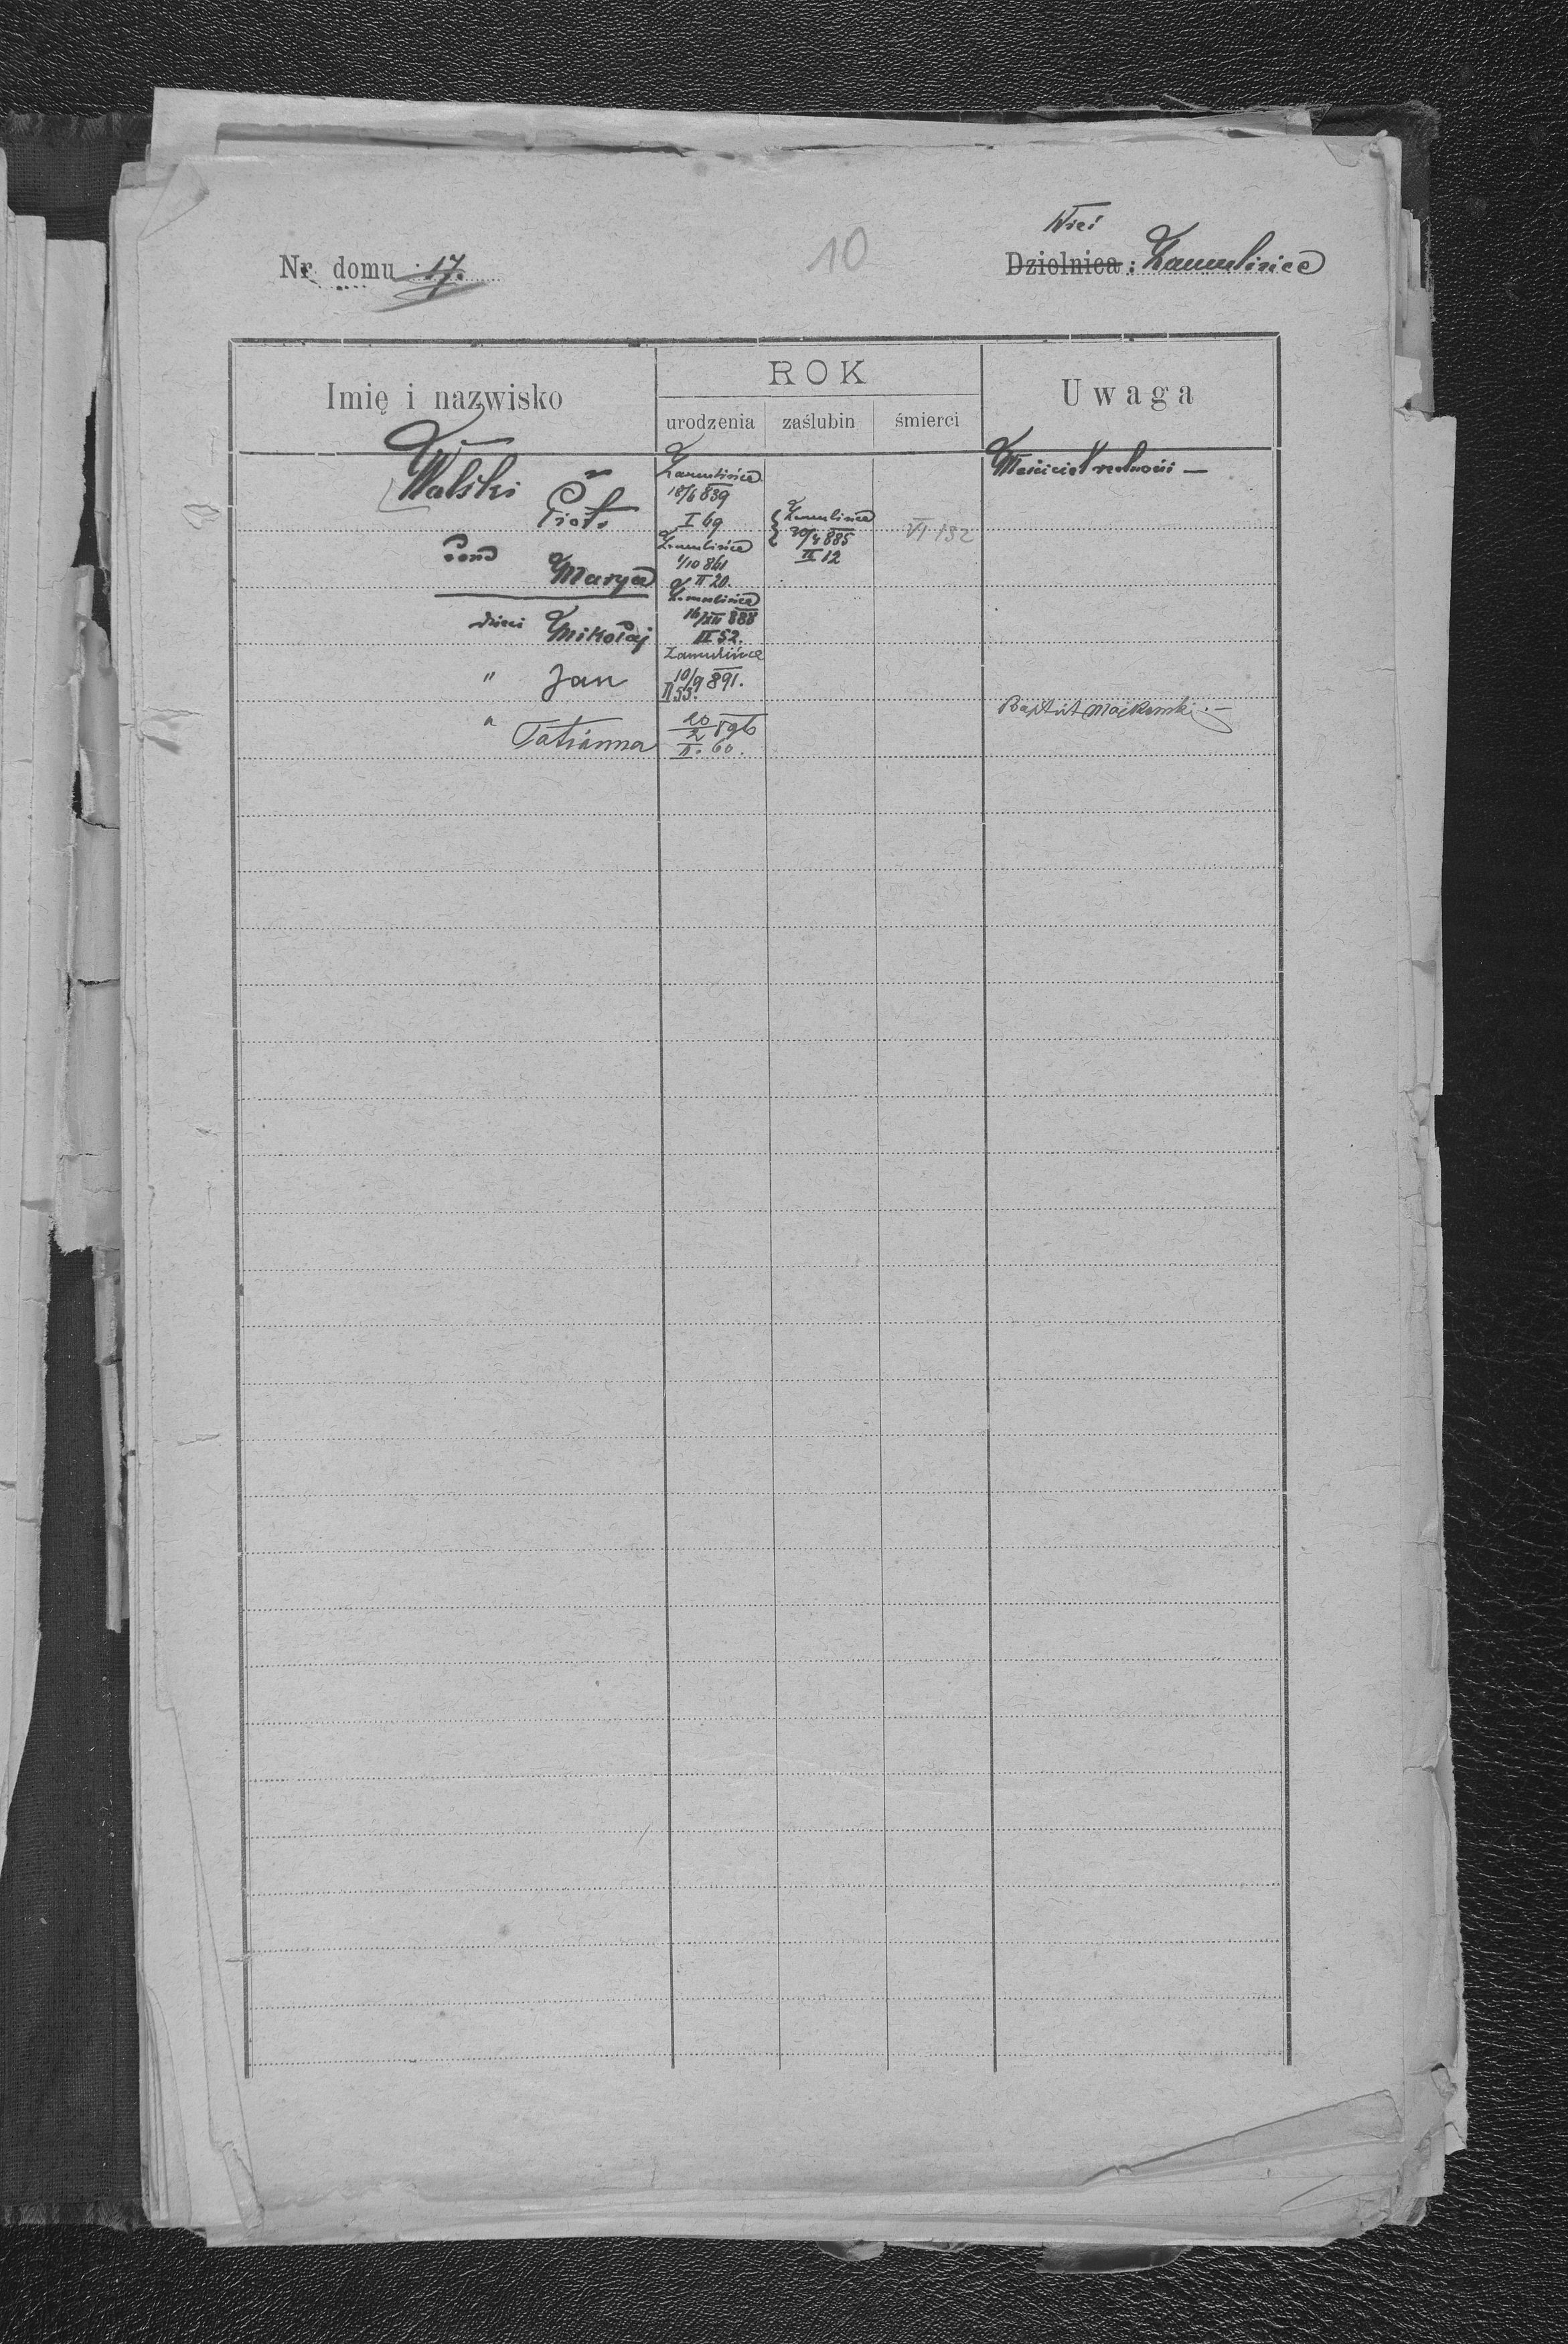 Nr domu 17.
10
Wieś
Dzielnica: Zamulińce
Imię i nazwisko
ROK
urodzenia zaślubin śmierci
Uwaga
Walski Piotr
Zamulińce
18/6 839
I 69
Zamulińce
30/4 885
II 12
VI 132
Właściciel realności —
żona Marya
Zamulińce
1/10 861
II 20.
dzieci Mikołaj
Zamulińce
16/XII 888
II 52.
" Jan
Zamulińce
10/9 891.
II 53.
" Tatianna
20/2 896
II. 60.